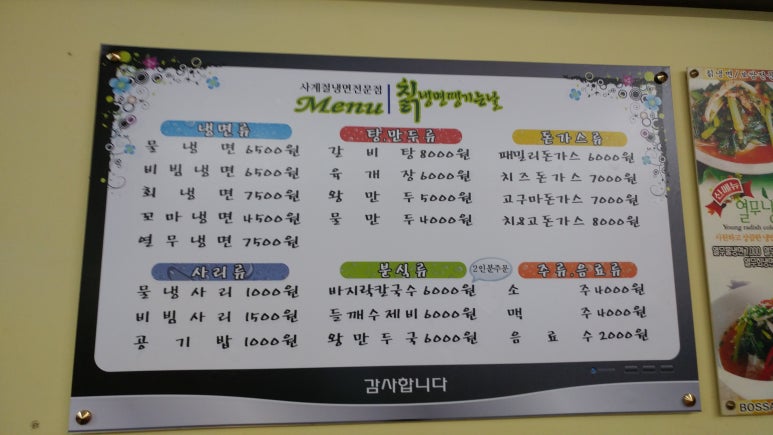 사계절냉면전문점
Menu
칡냉면땡기는날
냉면류
물냉면 6500원
비빔냉면 6500원
회냉면 7500원
꼬마냉면 4500원
열무냉면 7500원
탕만두류
갈비탕 8000원
육개장 6000원
왕만두 5000원
물만두 4000원
돈가스류
패밀리돈가스 6000원
치즈돈가스 7000원
고구마돈가스 7000원
치&고돈가스 8000원
사리류
물냉사리 1000원
비빔사리 1500원
공기밥 1000원
분식류
2인분주문
바지락칼국수 6000원
들깨수제비 6000원
왕만두국 6000원
주류.음료류
소주 4000원
맥주 4000원
음료수 2000원
감사합니다
신메뉴
Young radish
BOSSA